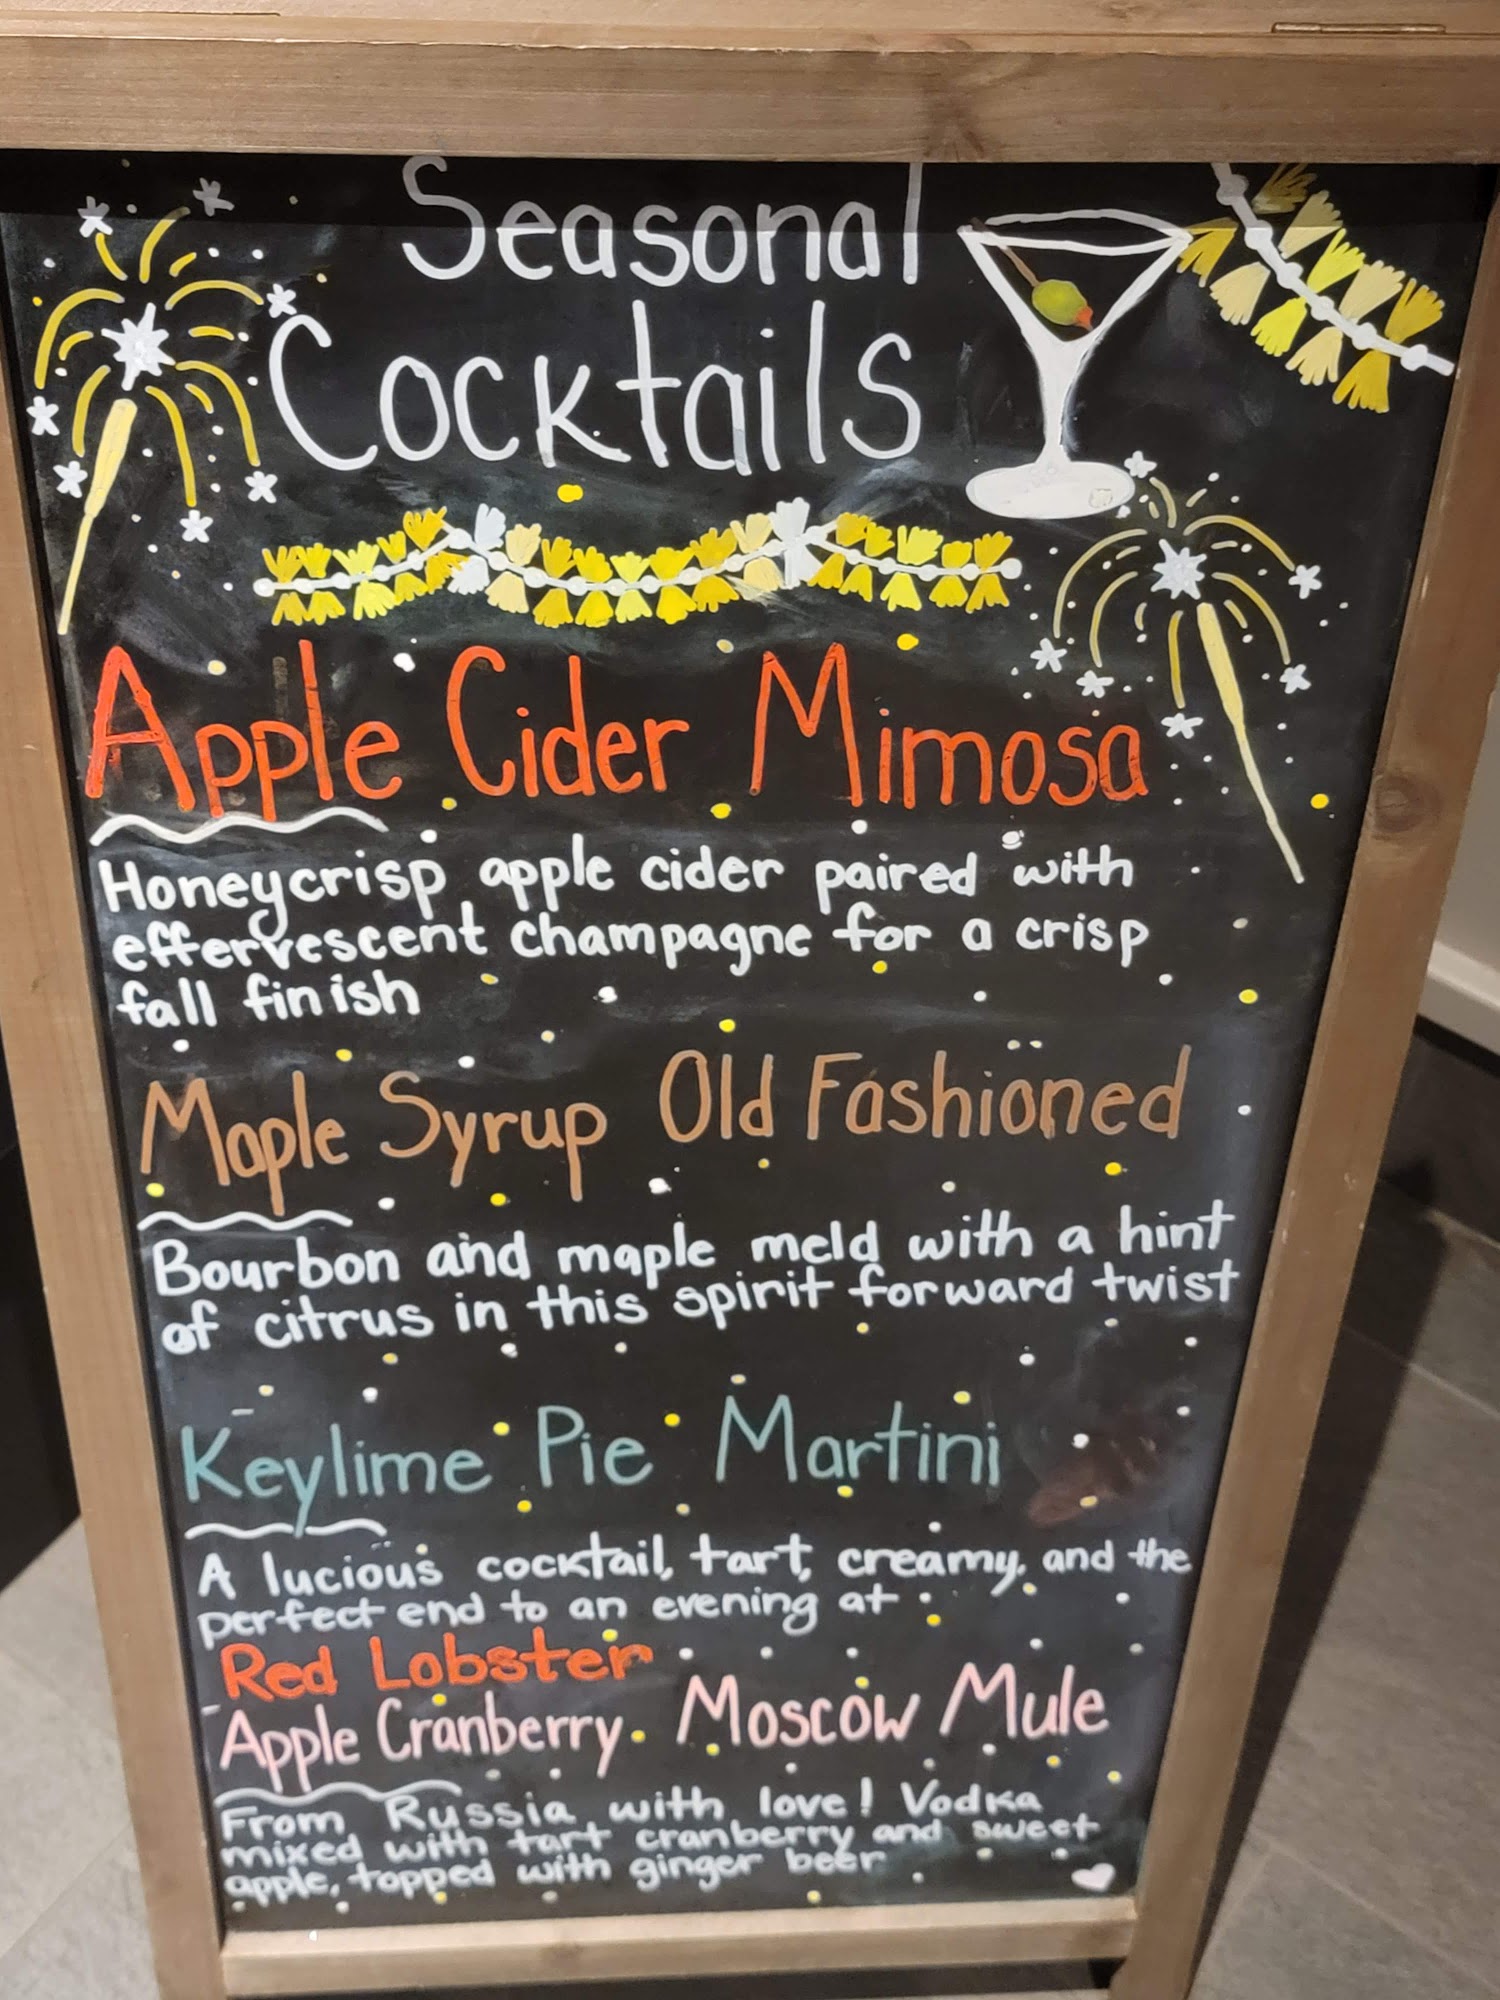 Seasonal
Cocktails
Apple Cider Mimosa
Honeycrisp apple cider paired with
effervescent champagne for a crisp
fall finish
Maple Syrup Old Fashioned
Bourbon and maple meld with a hint
of citrus in this spirit forward twist
Keylime Pie Martini
A lucious cocktail, tart, creamy, and the
perfect end to an evening at :
Red Lobster
Apple Cranberry Moscow Mule
From Russia with love! Vodka
mixed with tart cranberry and sweet
apple, topped with ginger beer